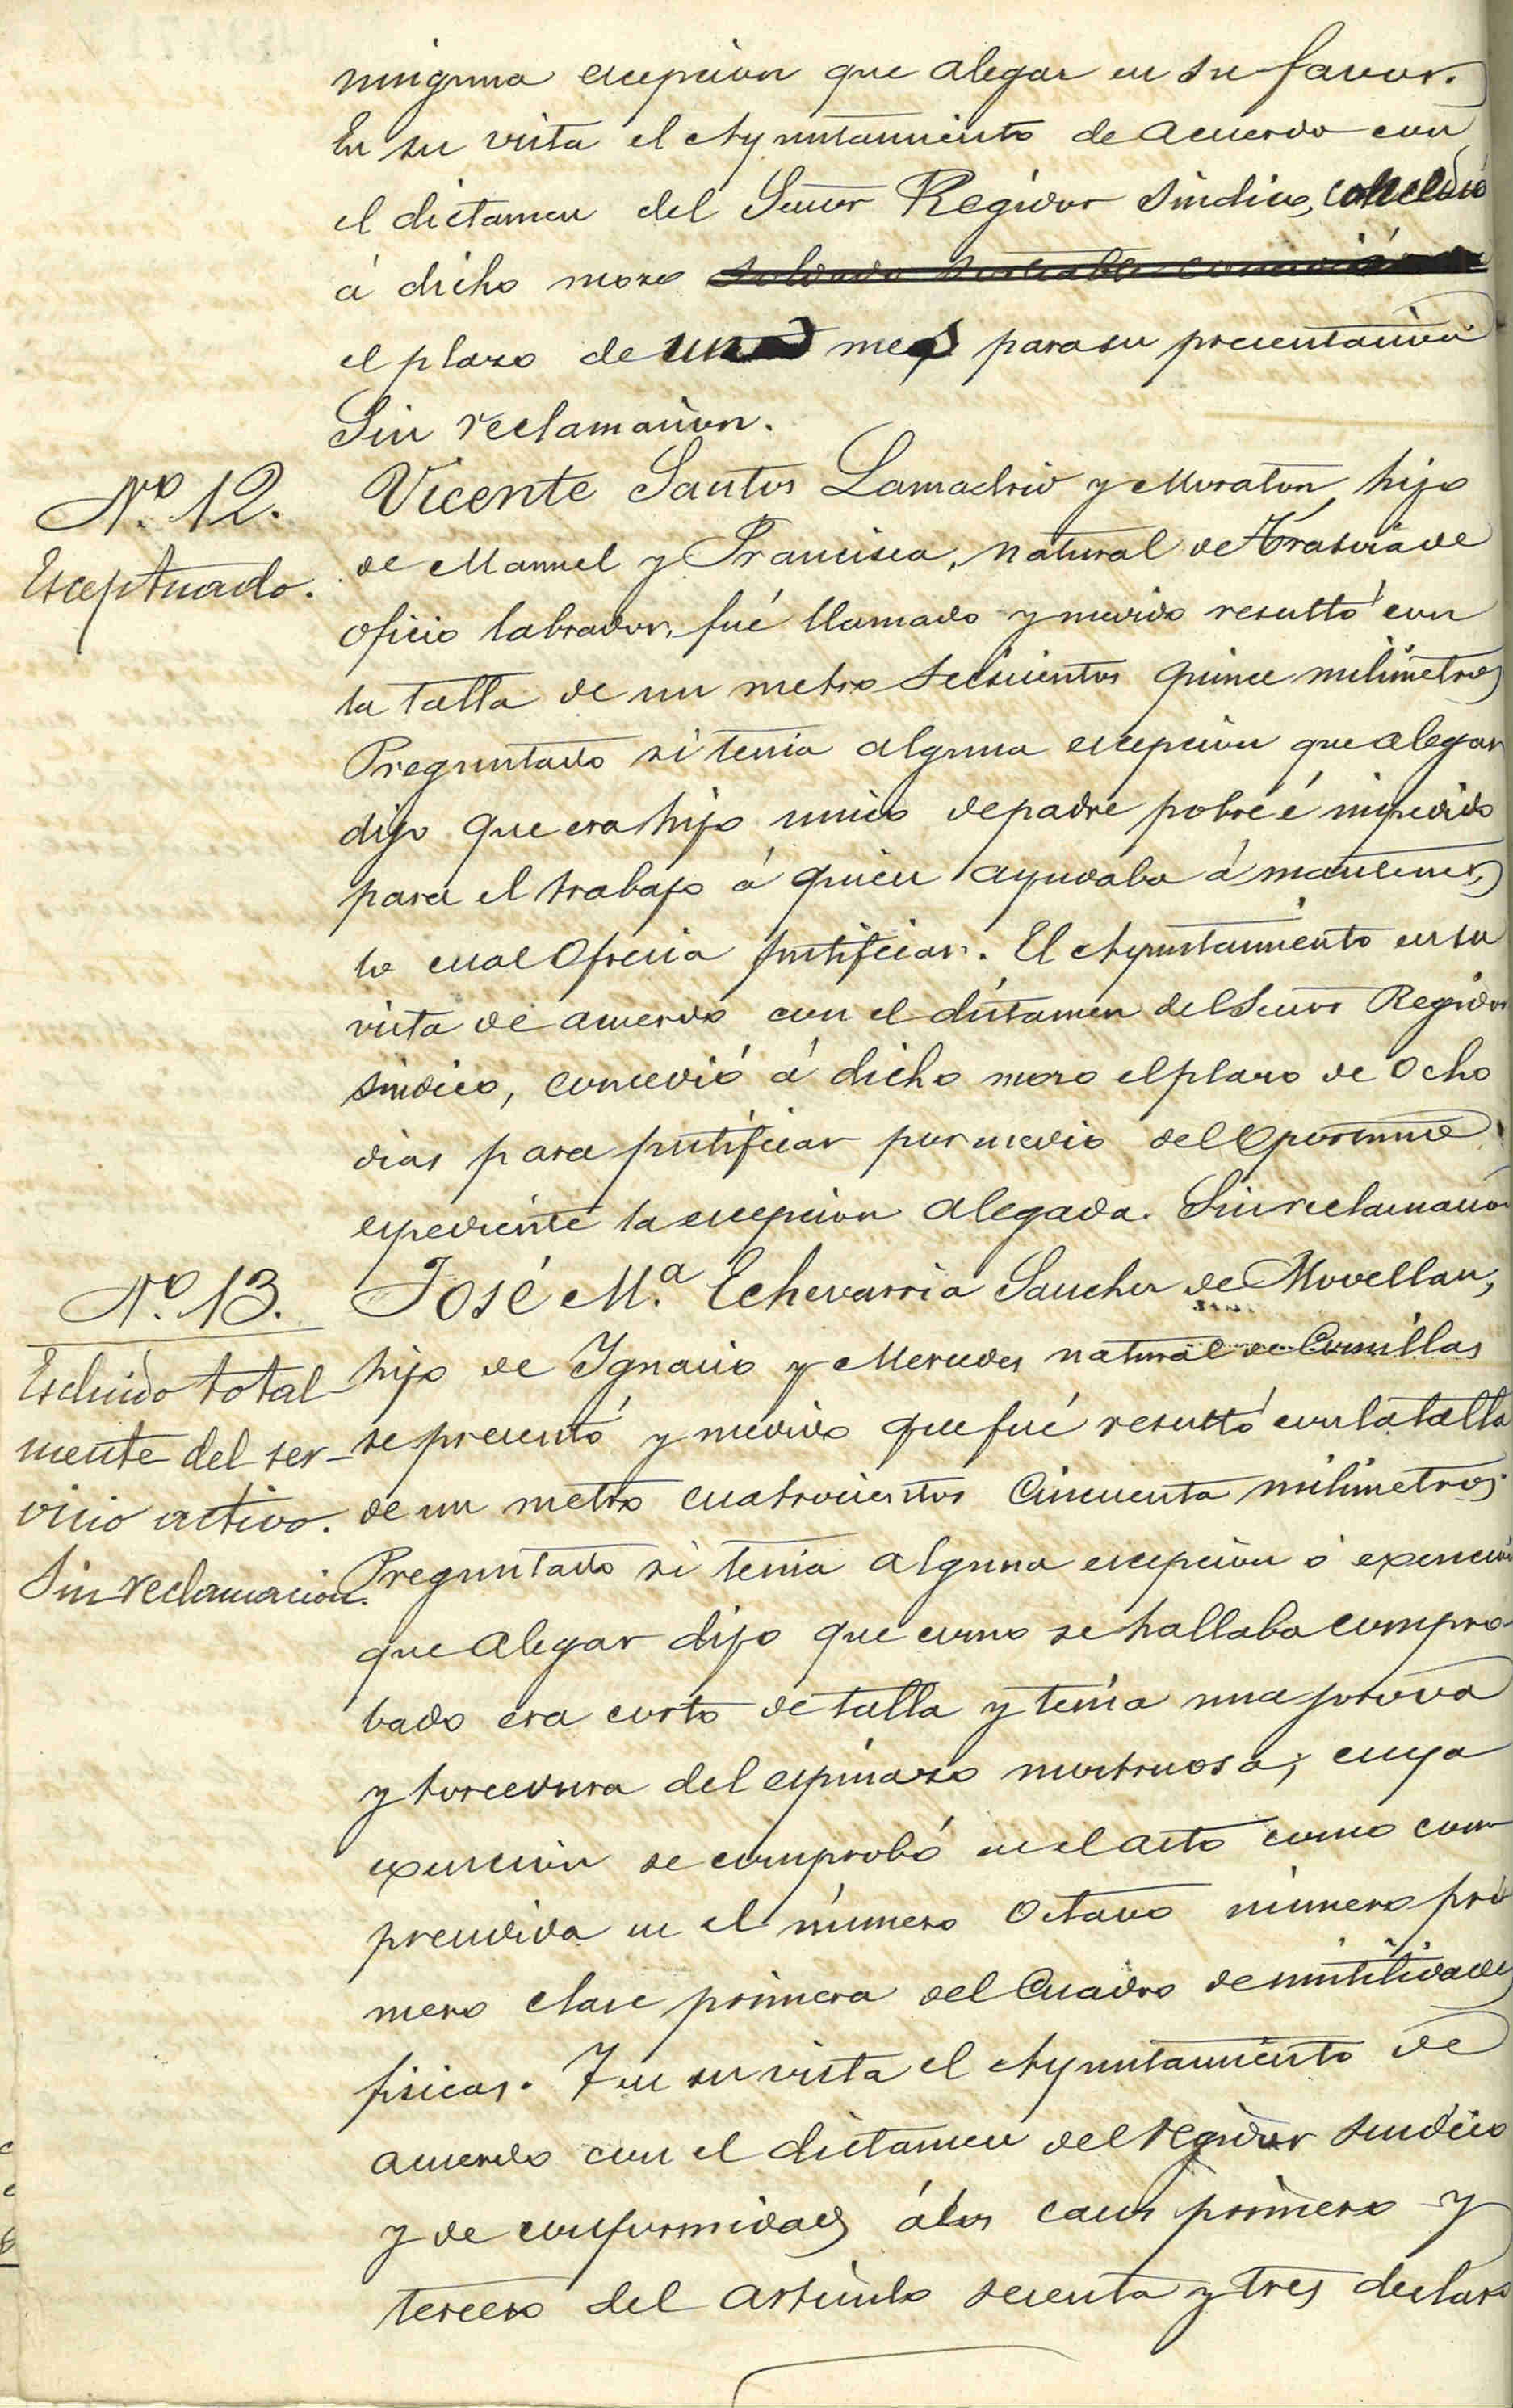 ninguna escepcion que alegar en su favor.
En su vista el Ayuntamiento de acuerdo con
el dictamen del Señor Regidor Sindico, concedió
á dicho mozo soldado sorteable
el plazo de un mes para su presentación
Sin reclamacion.
Nº 12.
Esceptuado.
Vicente Santos Lamadrid y Moraton, hijo
de Manuel y Francisca, natural de Trasvia de
oficio labrador, fué llamado y medido resultó con
la talla de un metro seiscientos quince milimetros
Preguntado si tenia alguna escepcion que alegar
dijo que era hijo unico de padre pobre é impedido
para el trabajo á quien ayudaba á mantener,
lo cual ofrecia justificar. El Ayuntamiento en su
vista de acuerdo con el dictamen del Señor Regidor
sindico, concedió á dicho mozo el plazo de ocho
dias para justificar por medio del oportuno
espediente la escepcion alegada. Sin reclamacion
Nº 13.
Escluido total
mente del ser-
vicio activo.
Sin reclamacion.
José Mª Echevarria Sanchez de Movellan,
hijo de Ignacio y Mercedes natural de Comillas
se presentó y medido que fué resultó con la talla
de un metro cuatrocientos cincuenta milimetros
Preguntado si tenia alguna escepcion ó exencion
que alegar dijo que como se hallaba compro-
bado era corto de talla y tenia una joroba
y torcedura del espinazo mostruosa, cuya
exencion se comprobó en el acto como com-
prendida en el número octavo número pri
mero clase primera del Cuadro de inutilidades
fisicas. Y en su vista el Ayuntamiento de
acuerdo con el dictamen del regidor sindico
y de conformidad á los casos primero y
tercero del articulo sesenta y tres declaró